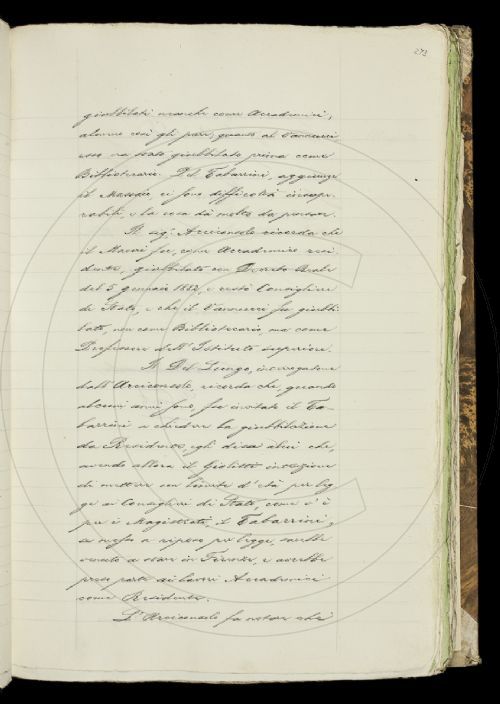 273
giubilati neanche come Accademici;
almeno così gli pare; quanto al Vannucci
esso era stato giubilato prima come
Bibliotecario. Pel Tabarrini, aggiunge
il Massaio, ci sono difficoltà insupe-
rabili, e la cosa dà molto da pensare.
Il sig. Arciconsolo ricorda che
il Mauri fu, come Accademico resi-
dente, giubilato con Decreto Reale
del 5 gennaio 1882, e restò Consigliere
di Stato, e che il Vannucci fu giubi-
lato, non come Bibliotecario, ma come
Professore dell'Istituto superiore.
Il Del Lungo, interrogatone
dall'Arciconsolo, ricorda che, quando
alcuni anni sono, fu invitato il Ta-
barrini a chiedere la giubilazione
da Residente, egli disse che,
avendo allora il Giolitti intenzione
di mettere un limite d'età per leg-
ge ai Consiglieri di Stato, come c'è
per i Magistrati, il Tabarrini,
se messo a riposo per legge, sarebbe
venuto a stare in Firenze, e avrebbe
preso parte ai lavori Accademici
come Residente.
L'Arciconsolo fa notare che